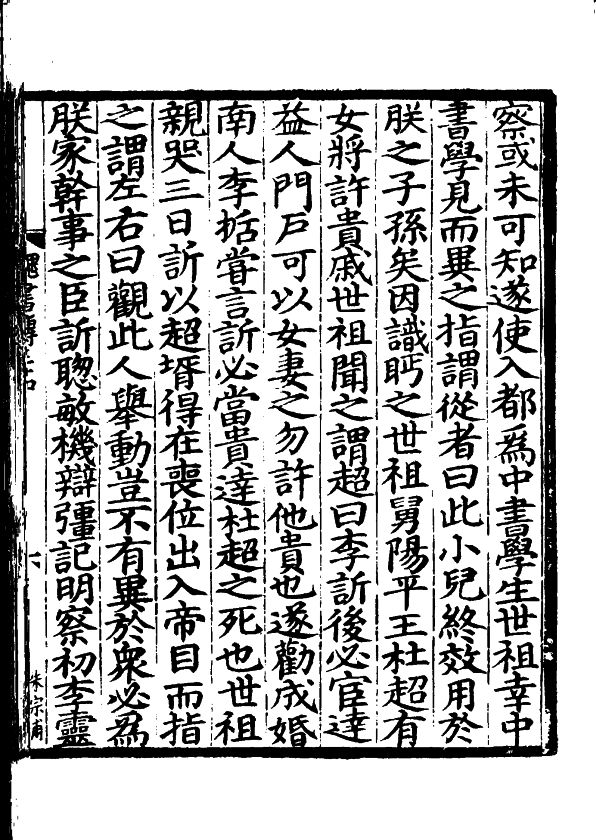 察或未可知遂使入都爲中書學生世祖幸中
書學見而異之指謂從者曰此小兒終效用於
朕之子孫矣因識眄之世祖舅陽平王杜超有
女將許貴戚世祖聞之謂超曰李訢後必宦達
益人門戶可以女妻之勿許他貴也遂勸成婚
南人李哲嘗言訢必當貴達杜超之死也世祖
親哭三日訢以超壻得在喪位出入帝目而指
之謂左右曰觀此人舉動豈不有異於衆必爲
朕家幹事之臣訢聰敏機辯彊記明察初李靈
魏書傳
六
朱宗甫